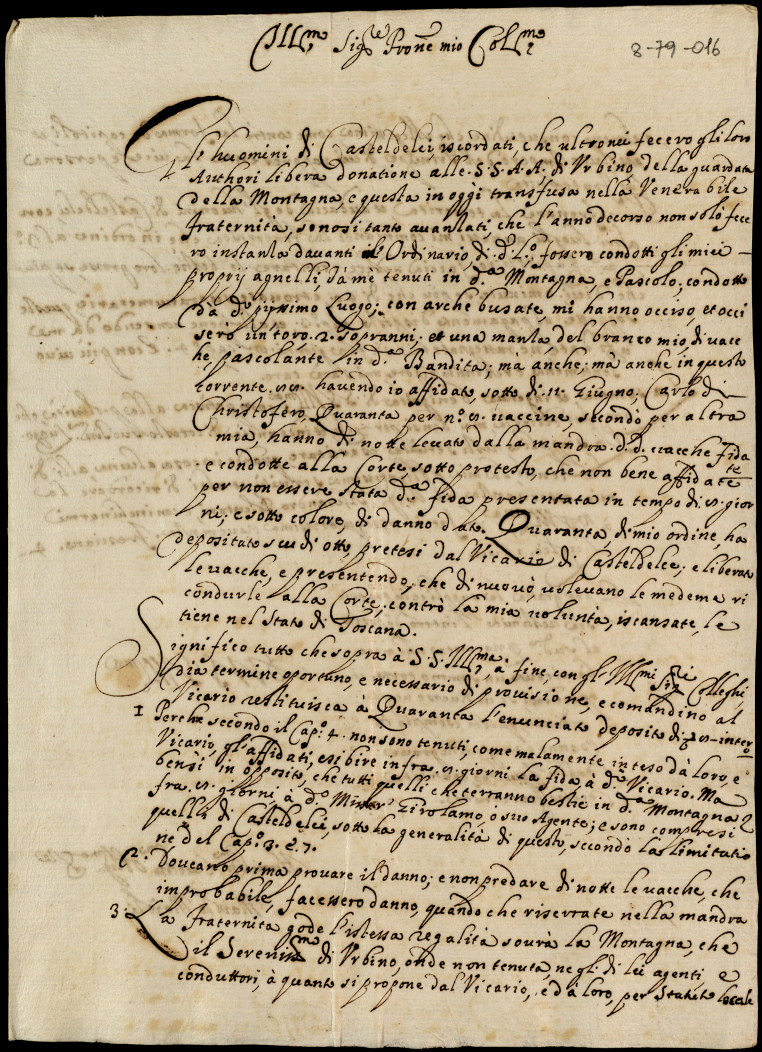 Ill.mo Sig.re Pron͞e mio Col.mo
8-79-016
Gl'huomini di Casteldelci, iscordati, che ultronei fecero gli loro
Authori libera donatione alle S.S.A.A. di Vrbino della guardata
della Montagna, e questa in oggi transfusa nella Venerabile
fraternità, sonosi tanto auanzati, che l'anno decorso non solo fece
ro instanza dauanti l'Ordinario, di d.o L.o fossero condotti gli miei
proprij agnelli, da mè tenuti in d.a Montagna, e Pascolo, condotto
dà d.o pijssimo Luogo; con arche busate, mi hanno occiso, et occi
sero un toro. 2. sopranni, et una manza, del branco mio, di vacc
he, pascolante in d.a Bandita; mà anche; mà anche in questo
torrente. hauendo io affidato, sotto di .11. Giugno, Carlo di
Christofero, Quaranta per n.o vaccine, secondo per altra
mia, hanno di notte leuato dalla mandra. d.d. uacche fida
e condotte alla Corte, sotto protesto, che non bene affidate te
per non essere stata d.a fida presentata in tempo di gior
ni; e sotto colore, di danno dato. Quaranta, di mio ordine, ha
depositato scudi otto, pretesi dal Vicario di Casteldelce; e liberate
le uacche, e presentendo, che di nuouo, uoleuano le medeme ri
condurle alla Corte, contrò la mia uoluntà, iscansate, le
tiene nel Stato di Toscana.
Significo tutto che sopra à S.S. Ill.ma, a fine, con gl'Ill.mi Sig.ri Colleghi,
dia termine oportuno, e necessario di prouisione, e comandino al
Vicario restituisca à Quaranta l'enunciato deposito di
1 Perche secondo il Cap.o 4. non sono tenuti, come malamente inteso dà loro, e
Vicario, gl'affidati, esibire infra giorni la fida, à d.o Vicario. Ma
bensì in opposito, che tutti quelli che terranno bestie in d.a Montagna
fra giorni à d.o Girolamo, ò suo Agente; e sono compresi
quelli di Casteldelci, sotto la generalità di questo, secondo la limitatio
ne del Cap.o 3. e. 7.
2. Doueano prima prouare il danno; e non predare di notte le uacche, che
improbabile, facessero danno, quando che riserrate nella mandra
3. La Fraternità gode l'istessa regalità soura la Montagna, che
il Seren.mo di Vrbino, onde non tenuta, ne gl. di lei agenti, e
conduttori, à quanto si propone dal Vicario, e dà loro, per Statuto locale